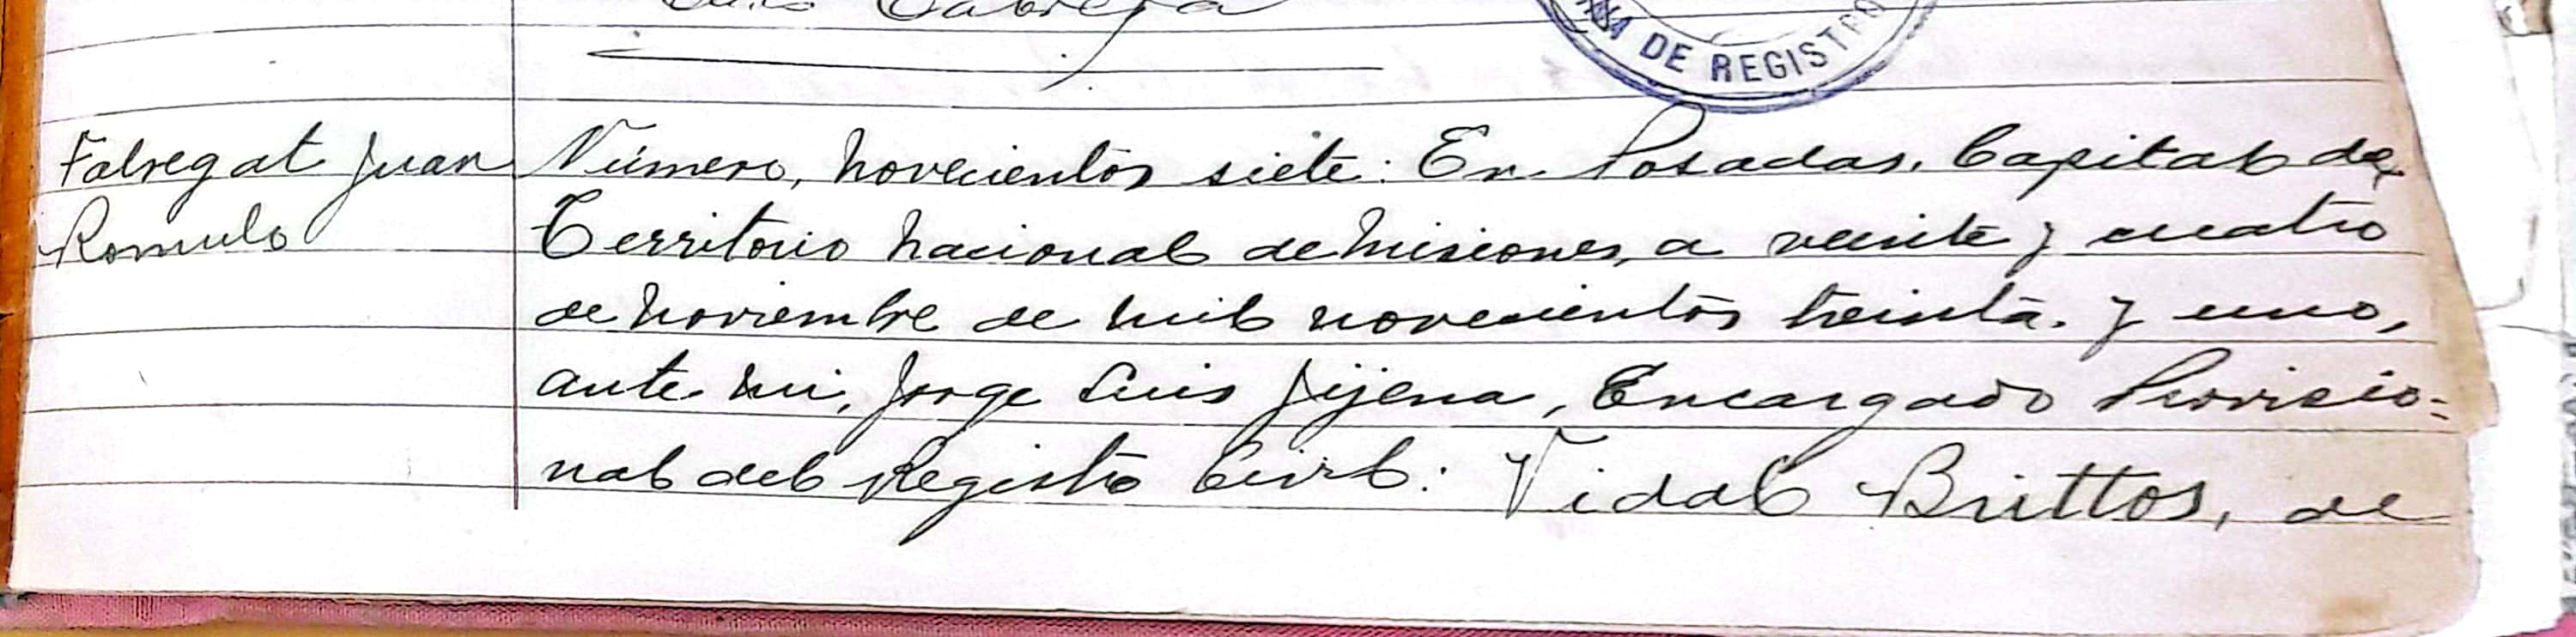 Cabrera
NA DE REGISTRO
Fabregat Juan
Romulo
Número, novecientos siete: En Posadas, Capital del
Territorio nacional de Misiones, a veinte y cuatro
de noviembre de mil novecientos treinta y uno,
ante mi, Jorge Luis Jijena, Encargado Provisio=
nal del Registro Civil: Vidal Brittos, de